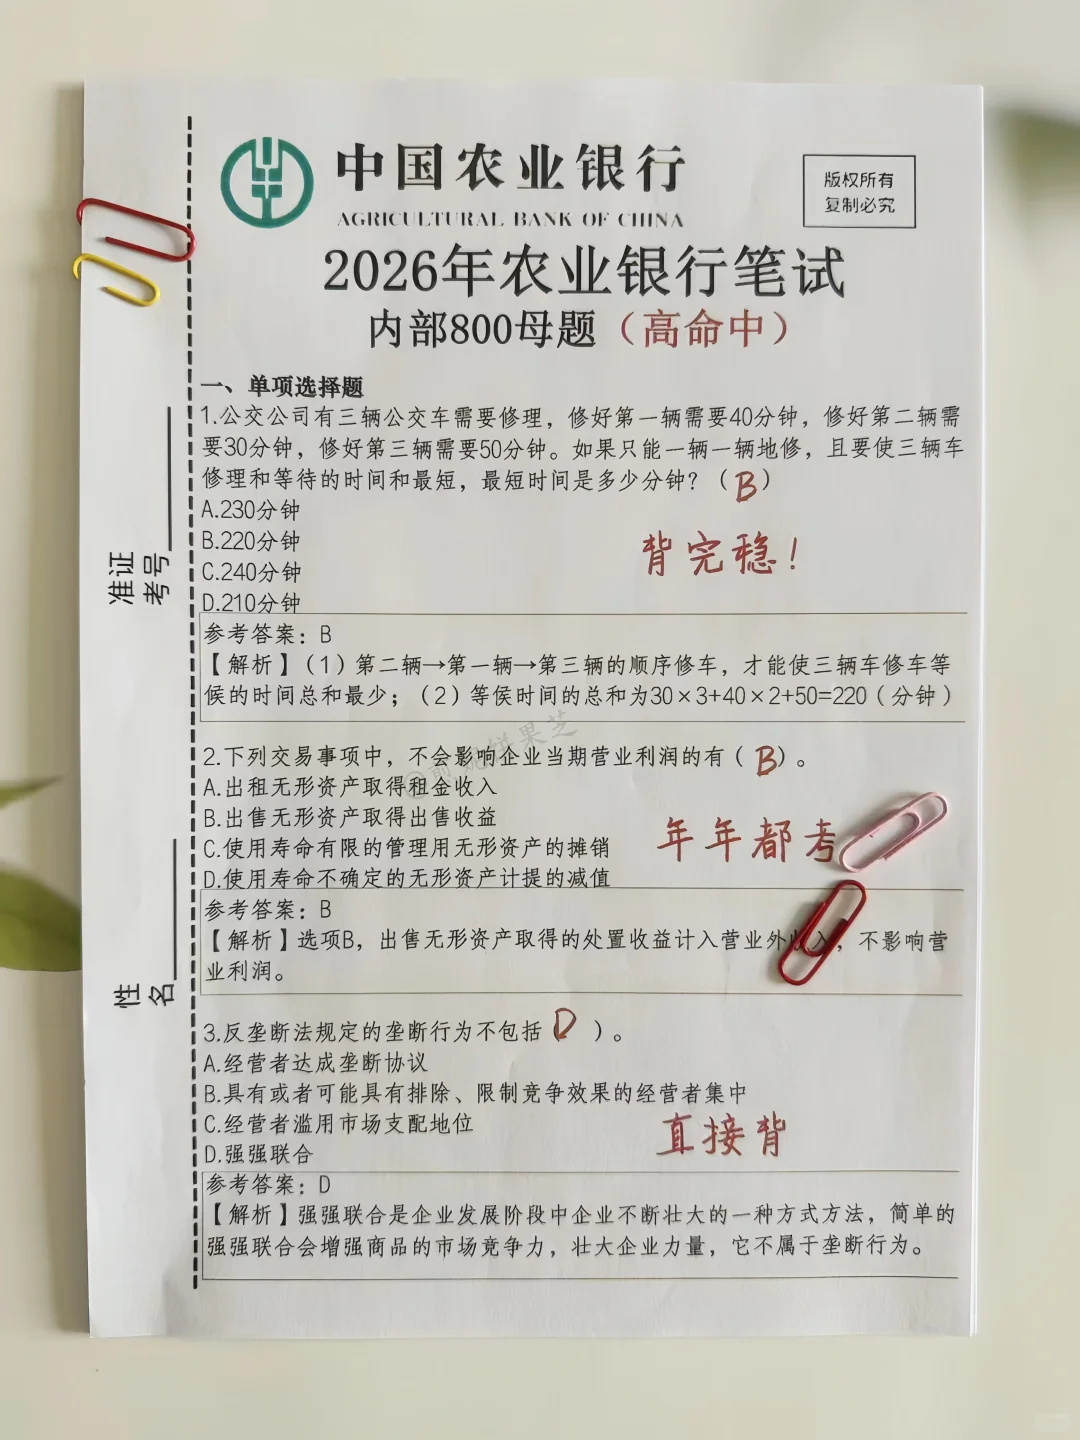 中国农业银行
AGRICULTURAL BANK OF CHINA
版权所有
复制必究
2026年农业银行笔试
内部800母题（高命中）
准证
考号
姓
名
一、单项选择题
1.公交公司有三辆公交车需要修理，修好第一辆需要40分钟，修好第二辆需
要30分钟，修好第三辆需要50分钟。如果只能一辆一辆地修，且要使三辆车
修理和等待的时间和最短，最短时间是多少分钟？（B）
A.230分钟
B.220分钟
背完稳！
C.240分钟
D.210分钟
参考答案：B
【解析】（1）第二辆→第一辆→第三辆的顺序修车，才能使三辆车修车等
候的时间总和最少；（2）等候时间的总和为30×3+40×2+50=220（分钟）
2.下列交易事项中，不会影响企业当期营业利润的有（B）。
A.出租无形资产取得租金收入
B.出售无形资产取得出售收益
年年都考
C.使用寿命有限的管理用无形资产的摊销
D.使用寿命不确定的无形资产计提的减值
参考答案：B
【解析】选项B，出售无形资产取得的处置收益计入营业外收入，不影响营
业利润。
3.反垄断法规定的垄断行为不包括（D）。
A.经营者达成垄断协议
B.具有或者可能具有排除、限制竞争效果的经营者集中
C.经营者滥用市场支配地位
直接背
D.强强联合
参考答案：D
【解析】强强联合是企业发展阶段中企业不断壮大的一种方式方法，简单的
强强联合会增强商品的市场竞争力，壮大企业力量，它不属于垄断行为。